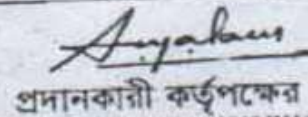 প্রদানকারী কর্তৃপক্ষের